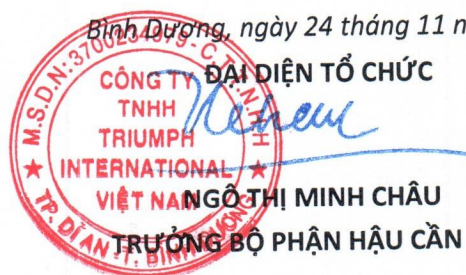 Bình Dương, ngày 24 tháng 11 n
ĐẠI DIỆN TỔ CHỨC
M.S.D.N: 3700234979 - C.T.T.N.H.H
CÔNG TY
TNHH
TRIUMPH
INTERNATIONAL
VIỆT NAM
TP. DĨ AN - T. BÌNH DƯƠNG
NGÔ THỊ MINH CHÂU
TRƯỞNG BỘ PHẬN HẬU CẦN